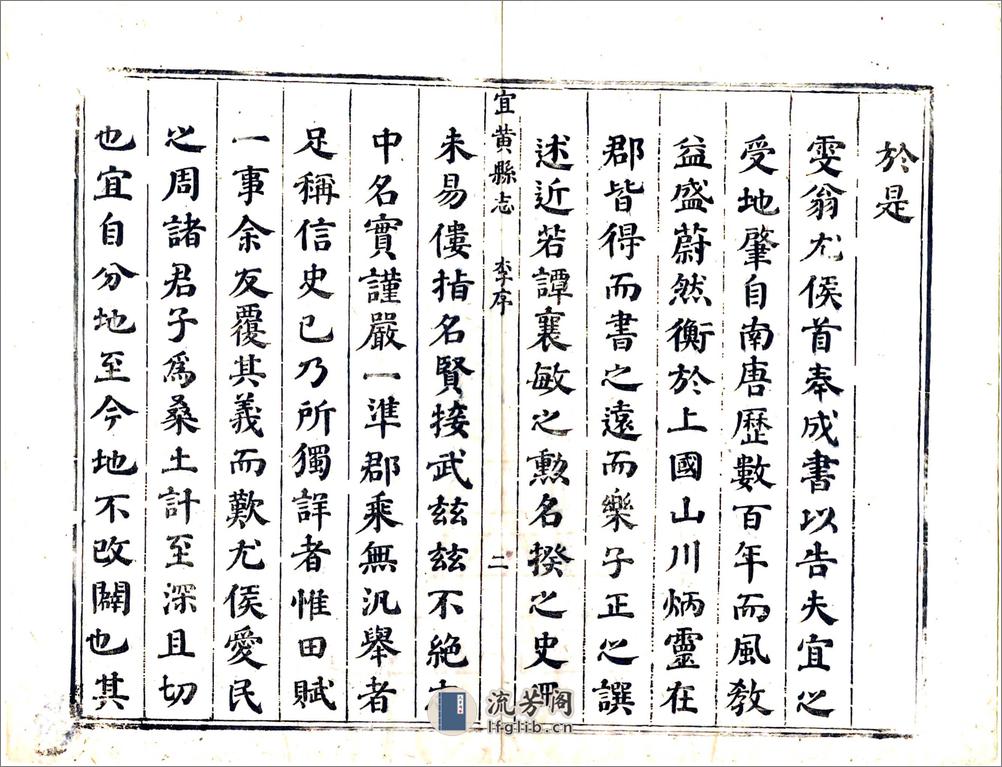 於是
雯翁尤侯首奉成書以告夫宜之
受地肇自南唐歷數百年而風教
益盛蔚然衡於上國山川炳靈在
郡皆得而書之遠而樂子正之譔
述近若譚襄敏之勲名揆之史冊
宜黄縣志 李序 二
未易僂指名賢接武玆玆不絶
中名實謹嚴一準郡乘無汎舉者
足稱信史已乃所獨詳者惟田賦
一事余友覆其義而歎尤侯愛民
之周諸君子爲桑土計至深且切
也宜自分地至今地不改闢也其
流芳阁
lfglib.cn